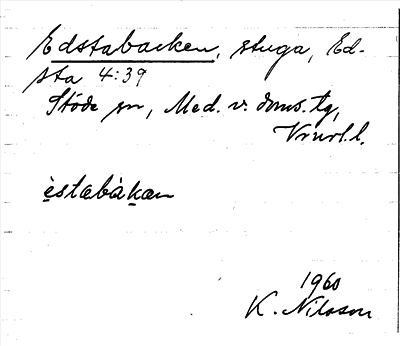 Edstabacken, stuga, Ed-
sta 4:39
Stöde sn, Med. v. doms. tg,
Vnorl. l.
èstabàkan
1960
K. Nilsson